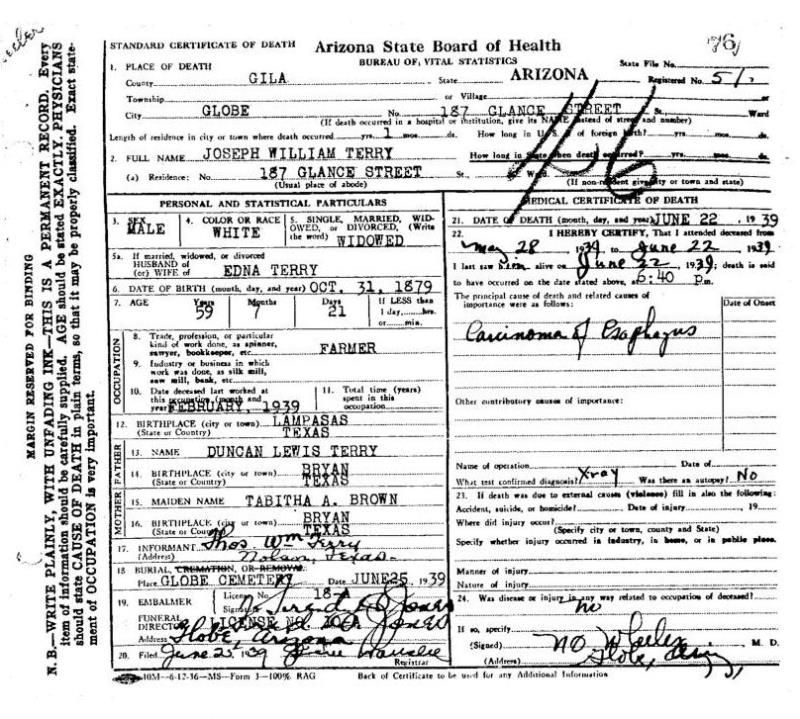 STANDARD CERTIFICATE OF DEATH Arizona State Board of Health
BUREAU OF VITAL STATISTICS State File No.
1. PLACE OF DEATH
County GILA State ARIZONA Registered No. 51
Township or Village or
City GLOBE No. 187 GLANCE STREET St., Ward
(If death occurred in a hospital or institution, give its NAME instead of street and number)
Length of residence in city or town where death occurred yrs. 1 mos. ds. How long in U. S. if of foreign birth? yrs. mos. ds.
2. FULL NAME JOSEPH WILLIAM TERRY How long in State when death occurred? yrs. mos. ds.
(a) Residence: No. 187 GLANCE STREET St., Ward.
(Usual place of abode) (If non-resident give city or town and state)
PERSONAL AND STATISTICAL PARTICULARS
3. SEX MALE 4. COLOR OR RACE WHITE 5. SINGLE, MARRIED, WIDOWED, or DIVORCED, (Write the word) WIDOWED
5a. If married, widowed, or divorced
HUSBAND of
(or) WIFE of EDNA TERRY
6. DATE OF BIRTH (month, day, and year) OCT. 31, 1879
7. AGE Years 59 Months 7 Days 21 If LESS than 1 day, hrs. or min.
OCCUPATION
8. Trade, profession, or particular
kind of work done, as spinner,
sawyer, bookkeeper, etc. FARMER
9. Industry or business in which
work was done, as silk mill,
saw mill, bank, etc.
10. Date deceased last worked at
this occupation (month and
year) FEBRUARY, 1939
11. Total time (years)
spent in this
occupation
12. BIRTHPLACE (city or town) LAMPASAS
(State or Country) TEXAS
FATHER
13. NAME DUNCAN LEWIS TERRY
14. BIRTHPLACE (city or town) BRYAN
(State or Country) TEXAS
MOTHER
15. MAIDEN NAME TABITHA A. BROWN
16. BIRTHPLACE (city or town) BRYAN
(State or Country) TEXAS
17. INFORMANT Thos. Wm Terry
(Address) Texas.
18 BURIAL, CREMATION, OR REMOVAL
Place GLOBE CEMETERY Date JUNE 25, 1939
19. EMBALMER License No. 187
Signature Jones
FUNERAL
DIRECTOR LICENSE NO. Jones
Address Globe, Arizona
20. Filed June 25, 1939
Registrar
MEDICAL CERTIFICATE OF DEATH
21. DATE OF DEATH (month, day, and year) JUNE 22, 1939
22. I HEREBY CERTIFY, That I attended deceased from
May 28 1939 to June 22, 1939
I last saw him alive on June 22, 1939; death is said
to have occurred on the date stated above, at 6:40 P.m.
The principal cause of death and related causes of
importance were as follows: Date of Onset
Carcinoma of Esophagus
Other contributory causes of importance:
Name of operation Date of
What test confirmed diagnosis? Xray Was there an autopsy? No
23. If death was due to external causes (violence) fill in also the following:
Accident, suicide, or homicide? Date of injury, 19
Where did injury occur?
(Specify city or town, county and State)
Specify whether injury occurred in industry, in home, or in public place.
Manner of injury
Nature of injury
24. Was disease or injury in any way related to occupation of deceased?
no
If so, specify
(Signed) Wheeler, M. D.
(Address) Globe, Ariz
10M—6-12-36—MS—Form 3—100% RAG Back of Certificate to be used for any Additional Information
MARGIN RESERVED FOR BINDING
N. B.—WRITE PLAINLY, WITH UNFADING INK—THIS IS A PERMANENT RECORD. Every
item of information should be carefully supplied. AGE should be stated EXACTLY. PHYSICIANS
should state CAUSE OF DEATH in plain terms, so that it may be properly classified. Exact state-
ment of OCCUPATION is very important.